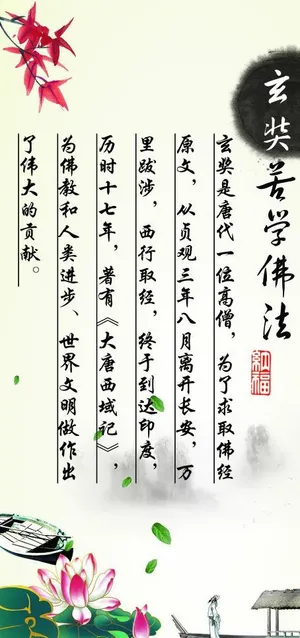 玄奘苦学佛法
玄奘是唐代一位高僧，为了求取佛经
原文，从贞观三年八月离开长安，万
里跋涉，西行取经，终于到达印度，
历时十七年，著有《大唐西域记》，
为佛教和人类进步、世界文明做作出
了伟大的贡献。